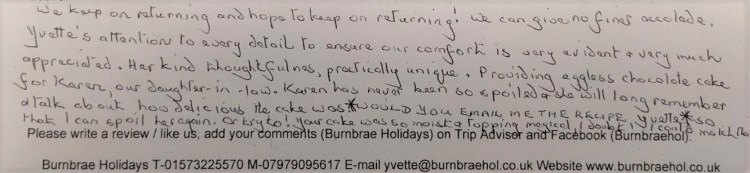 We keep on returning and hope to keep on returning! We can give no finer accolade.
Yvette's attention to every detail to ensure our comfort is very evident & very much
appreciated. Her kind thoughtfulness, practically unique. Providing eggless chocolate cake
for Karen, our daughter-in-law. Karen has never been so spoiled & she will long remember
& talk about how delicious the cake was * WOULD YOU EMAIL ME THE RECIPE, Yvette * so
that I can spoil her again. Or try to! Your cake was so moist & topping magical I doubt I could match it
Please write a review / like us, add your comments (Burnbrae Holidays) on Trip Advisor and Facebook (Burnbraehol).
Burnbrae Holidays T-01573225570 M-07979095617 E-mail yvette@burnbraehol.co.uk Website www.burnbraehol.co.uk